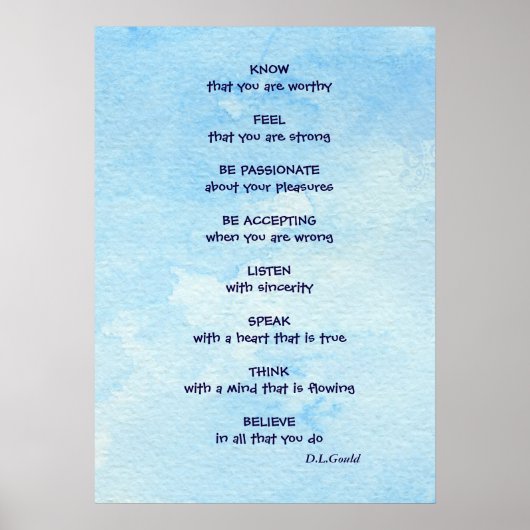 KNOW
that you are worthy
FEEL
that you are strong
BE PASSIONATE
about your pleasures
BE ACCEPTING
when you are wrong
LISTEN
with sincerity
SPEAK
with a heart that is true
THINK
with a mind that is flowing
BELIEVE
in all that you do
D.L.Gould